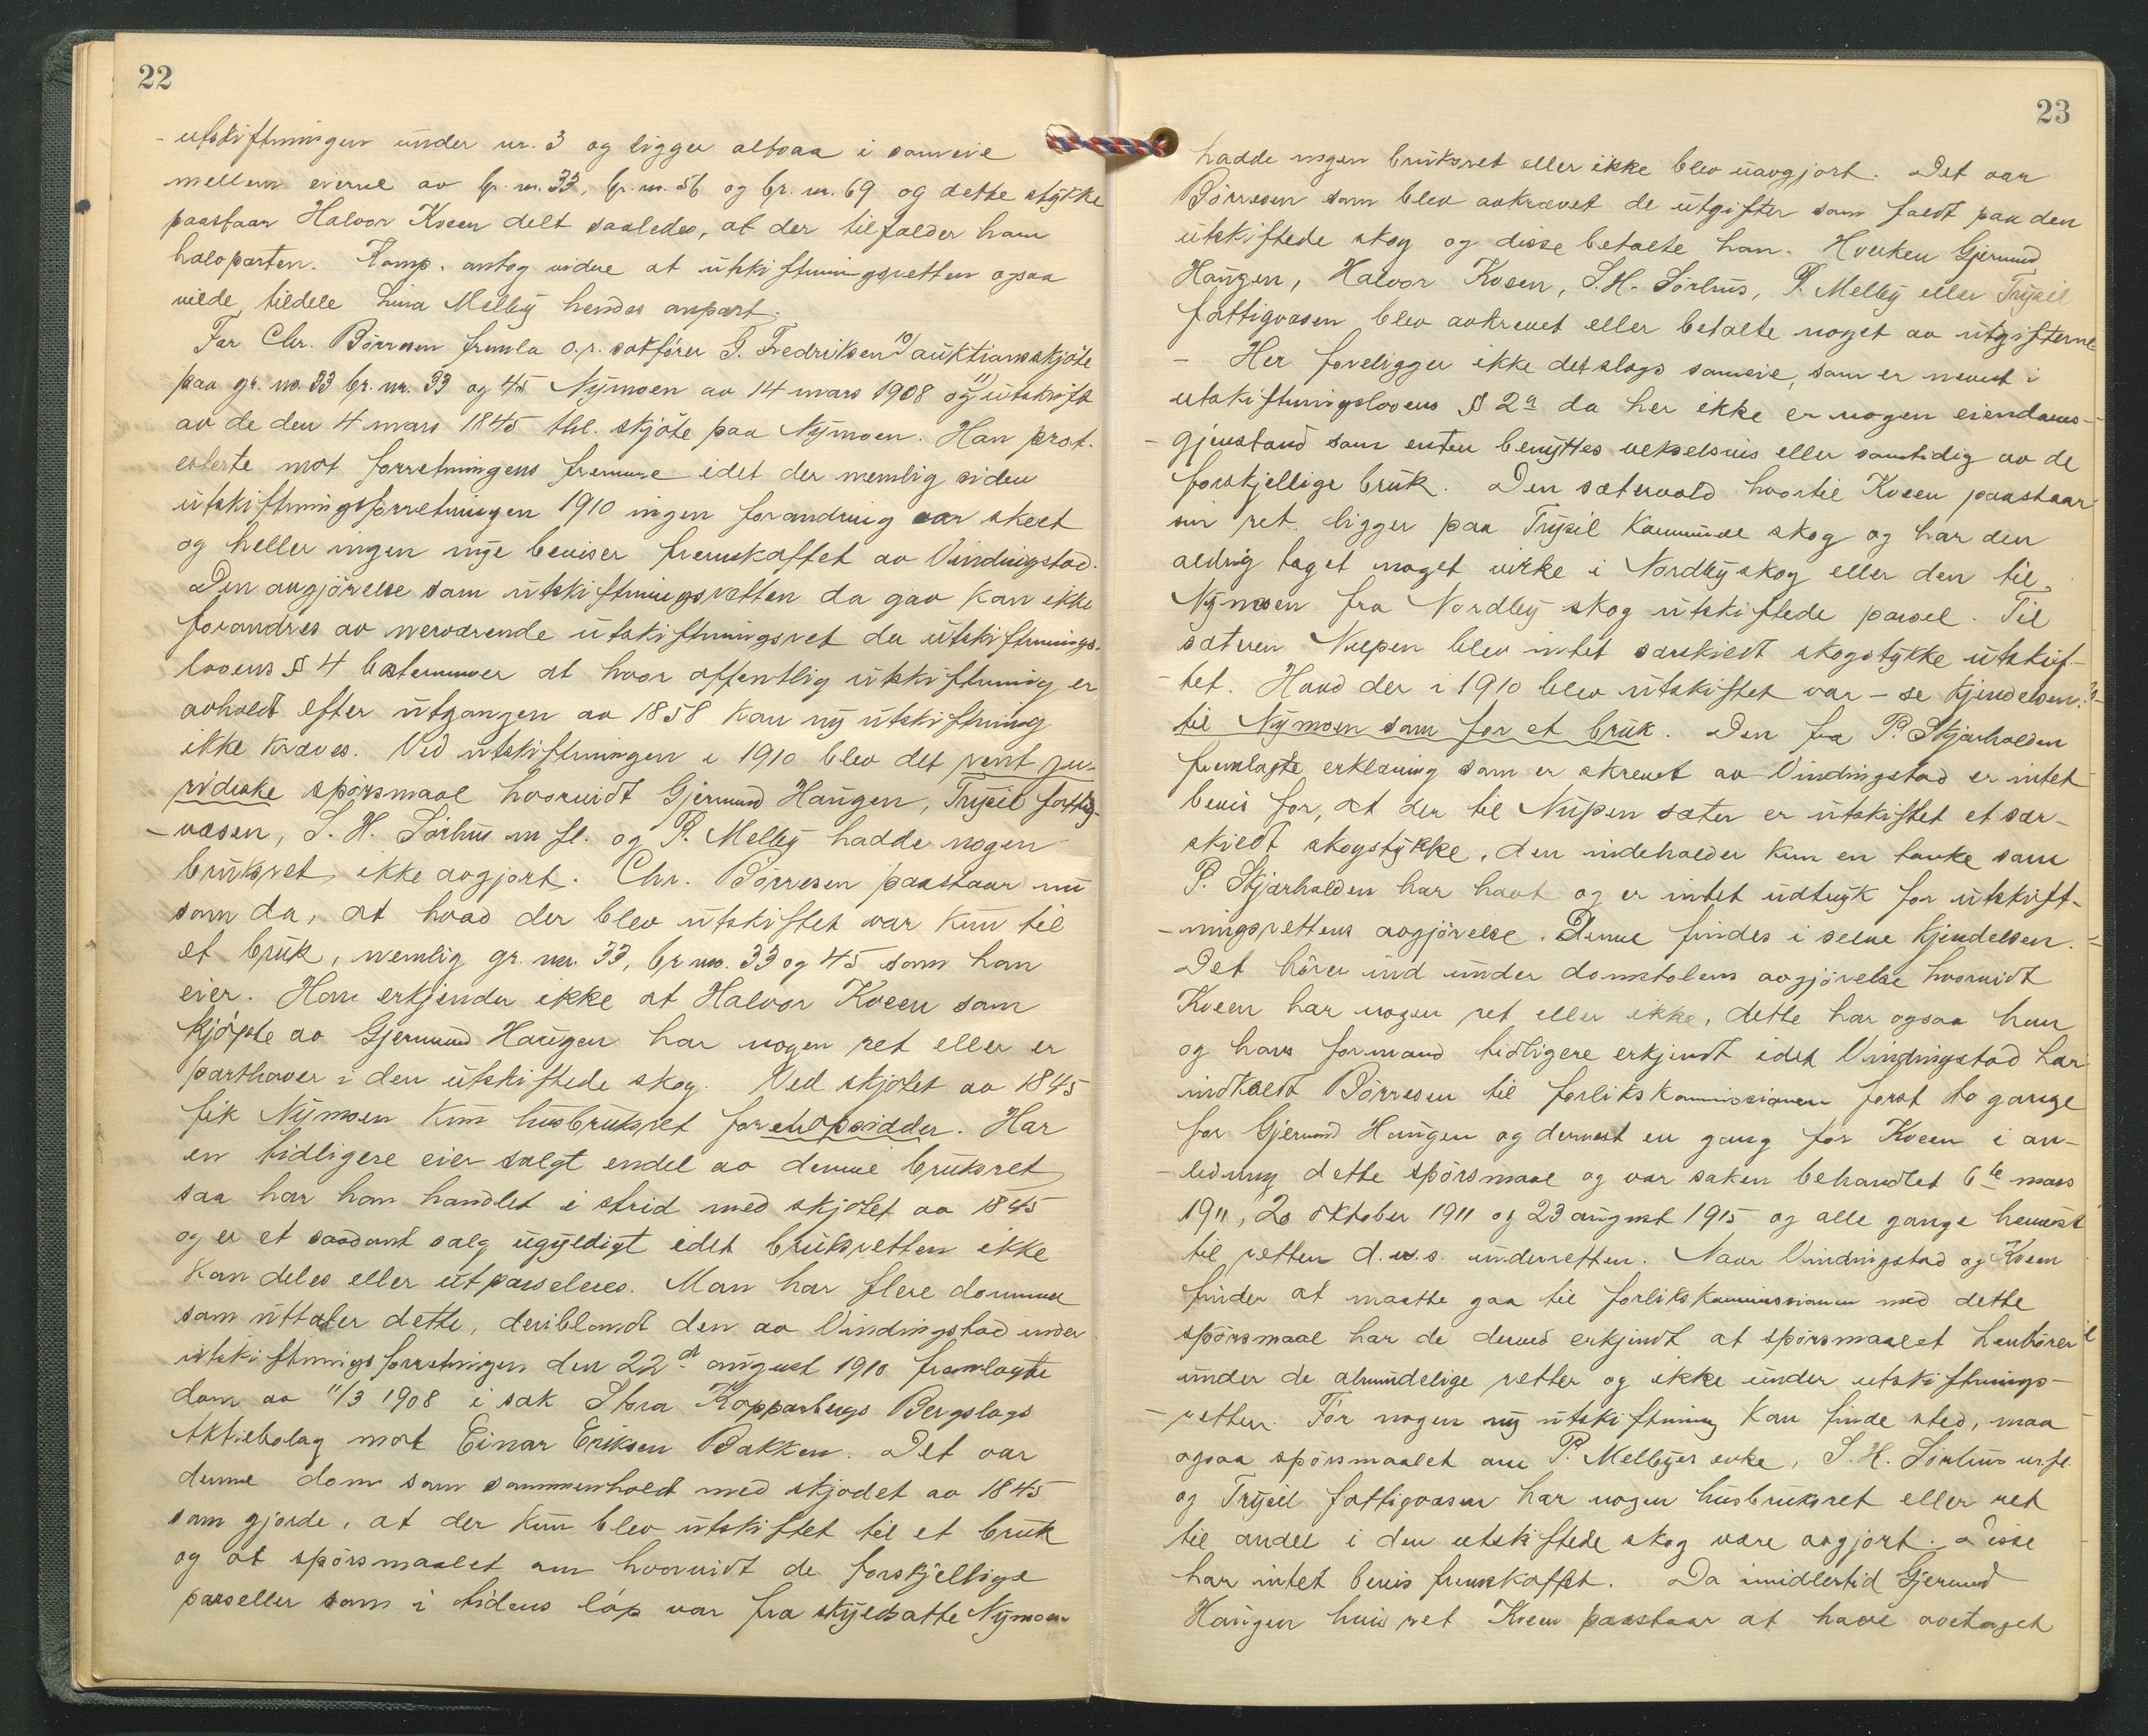 22
utskiftningen under nr. 3 og ligger altsaa i sameie
mellem eierne av br. nr. 33, br. nr. 56 og br. nr. 69 og dette stykke
paastaar Halvor Kveen delt saaledes, at der tilfalder ham
halvparten. Komp. antog videre at utskiftningsretten ogsaa
vilde tildele Lina Melby hendes anpart.
For Chr. Börresen fremla o.r. sakförer G. Fredriksen 10) auktionsskjöte
paa gr. no. 33 br. nr. 33 og 45 Nymoen av 14 mars 1908 og 11) utskrift
av de den 4 mars 1845 thl. skjöte paa Nymoen. Han prot-
esterte mot forretningens fremme idet der nemlig siden
utskiftningsforretningen 1910 ingen forandring var skeet
og heller ingen nye beviser fremskaffet av Vindingstad.
Den avgjörelse som utskiftningsretten da gav kan ikke
forandres av nerværende utskiftningsret da utskiftnings-
lovens § 4 bestemmer at hvor offentlig utskiftning er
avholdt efter utgangen av 1858 kan ny utskiftning
ikke kræves. Ved utskiftningen i 1910 blev det rent ju-
ridiske spörsmaal hvorvidt Gjermund Haugen, Trysil fattig-
væsen, S. H. Sörhus m fl. og P. Melby hadde nogen
bruksret ikke avgjort. Chr. Börresen paastaar nu
som da, at hvad der blev utskiftet var kun til
et bruk, nemlig gr. nr. 33, br no. 33 og 45 som han
eier. Han erkjender ikke at Halvor Kveen som
kjöpte av Gjermund Haugen har nogen ret eller er
parthaver i den utskiftede skog. Ved skjötet av 1845
fik Nymoen kun husbruksret for en opsidder. Har
en tidligere eier solgt endel av denne bruksret
saa har han handlet i strid med skjötet av 1845
og er et saadant salg ugyldigt idet bruksretten ikke
kan deles eller utparseleres. Man har flere domme
som uttaler dette, deriblandt den av Vindingstad under
utskiftningsforretningen den 22de august 1910 fremlagte
dom av 11/3 1908 i sak Stora Kopparbergs Bergslags
Aktiebolag mot Einar Eriksen Bakken. Det var
denne dom som sammenholdt med skjödet av 1845
som gjorde, at der kun blev utskiftet til et bruk
og at spörsmaalet om hvorvidt de forskjellige
parseller som i tidens löp var fra skyldsatte Nymoen
23
hadde nogen bruksret eller ikke blev uavgjort. Det var
Börresen som blev avkrævet de utgifter som faldt paa den
utskiftede skog og disse betalte han. Hverken Gjermund
Haugen, Halvor Kveen, S. H. Sörhus, P. Melby eller Trysil
fattigvæsen blev avkrevet eller betalte noget av utgifterne
- Her foreligger ikke det slags sameie, som er nevnt i
utskiftningslovens § 2a da her ikke er nogen eiendoms-
gjenstand som enten benyttes vekselsvis eller samtidig av de
forskjellige bruk. Den sætervold hvortil Kveen paastaar
sin ret ligger paa Trysil kommunes skog og har den
aldrig taget noget virke i Nordbyskog eller den til
Nymoen fra Nordby skog utskiftede parsel. Til
sætren Nuppen blev intet særskildt skogstykke utskif-
tet. Hvad der i 1910 blev utskiftet var - se kjendelsen:
til Nymoen som for et bruk. Den fra P. Skjærholden
fremlagte erklæring som er skrevet av Vindingstad er intet
bevis for, at der til Nupen sæter er utskiftet et sær-
skildt skogstykke, den indeholder kun en tanke som
P. Skjærholden har havt og er intet udtryk for utskift-
ningsrettens avgjörelse. Denne findes i selve kjendelsen.
Det hörer ind under domstolens avgjörelse hvorvidt
Kveen har nogen ret eller ikke, dette har ogsaa han
og hans formand tidligere erkjendt idet Vindingstad har
indkaldt Börresen til forlikskommissionen först to gange
for Gjermund Haugen og dernest en gang for Kveen i an-
ledning dette spörsmaal og var saken behandlet 6te mars
1911, 20 oktober 1911 og 23 august 1915 og alle gange henvist
til retten d.v.s. underretten. Naar Vindingstad og Kveen
finder at maatte gaa til forlikskommissionen med dette
spörsmaal har de derved erkjendt at spörsmaalet henhörer
under de almindelige retter og ikke under utskiftnings-
retten. För nogen ny utskiftning kan finde sted, maa
ogsaa spörsmaalet om P. Melbyes enke, S. H. Sörhus m.fl.
og Trysil fattigvæsen har nogen husbruksret eller ret
til andel i den utskiftede skog være avgjort. Disse
har intet bevis fremskaffet. Da imidlertid Gjermund
Haugen hvis ret Kveen paastaar at have overtaget